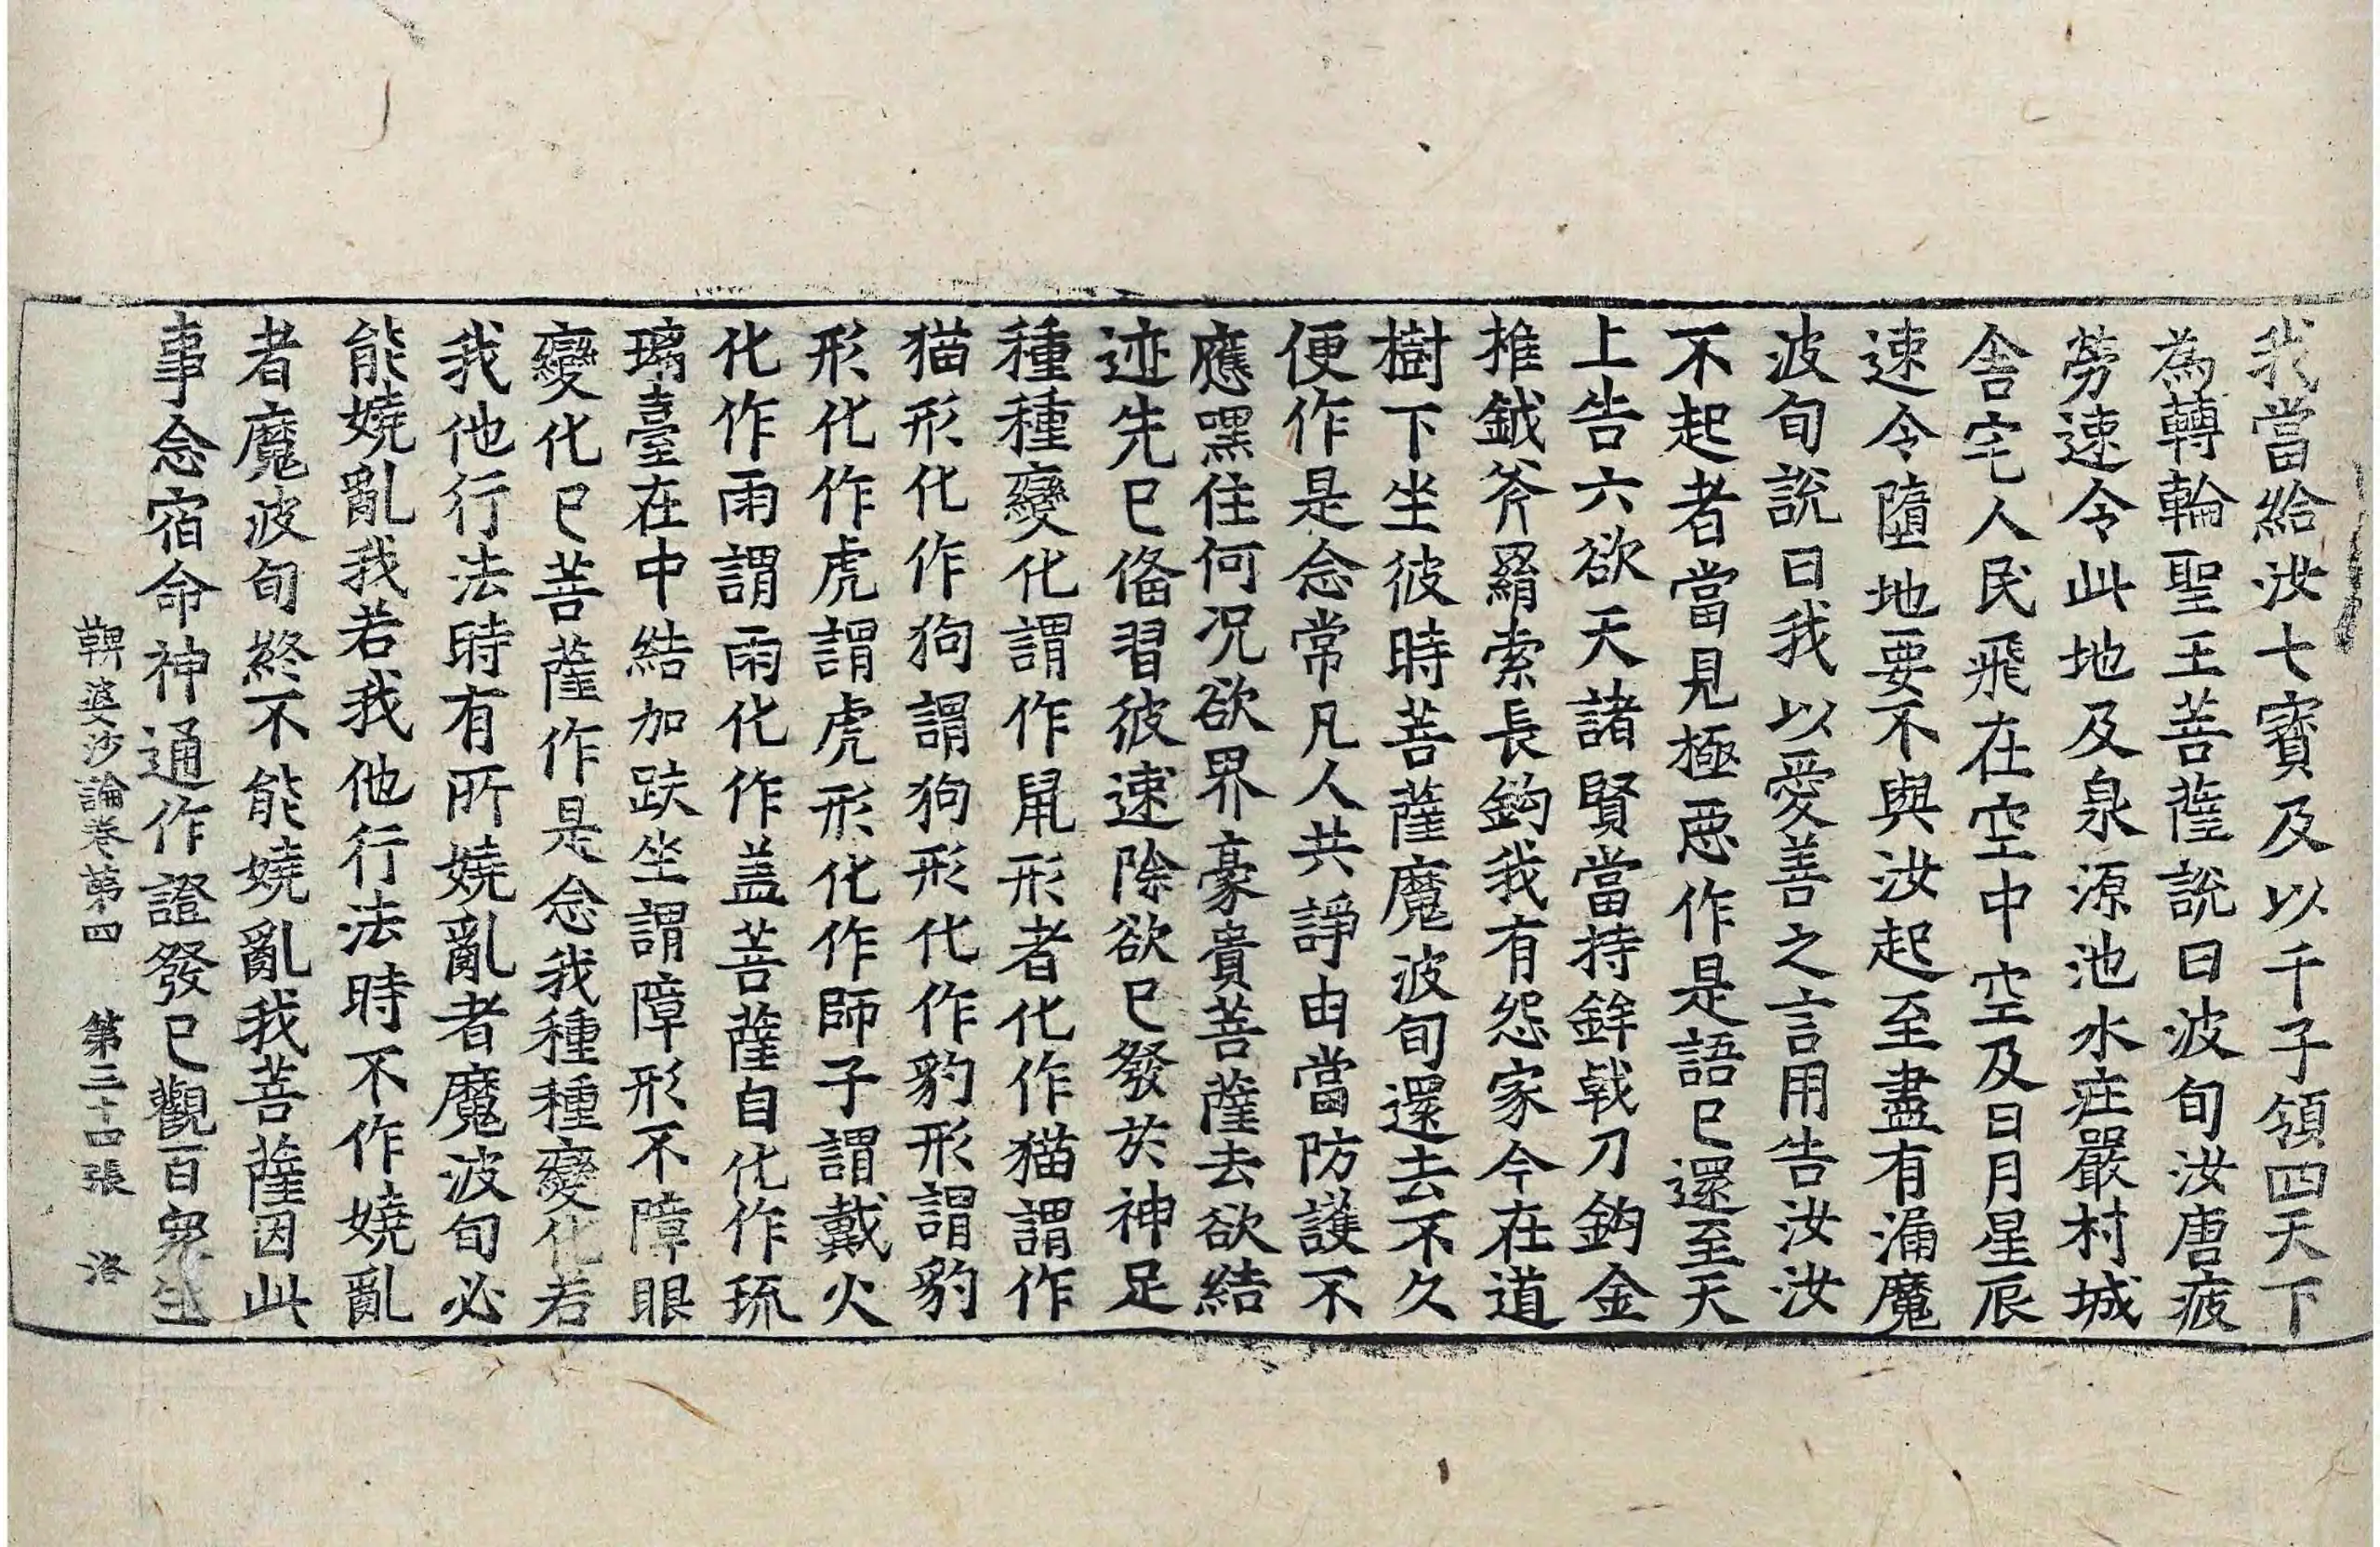 我當給汝七寶及以千子領四天下
為轉輪聖王菩薩說曰波旬汝唐疲
勞速令此地及泉源池水庄嚴村城
舍宅人民飛在空中空及日月星辰
速令墮地要不與汝起至盡有漏魔
波旬說曰我以愛善之言用告汝汝
不起者當見極惡作是語已還至天
上告六欲天諸賢當持鉾戟刀鈎金
椎鉞斧羂索長鈎我有怨家今在道
樹下坐彼時菩薩魔波旬還去不久
便作是念常凡人共諍由當防護不
應嘿住何況欲界豪貴菩薩去欲結
迹先已俻習彼速除欲已發於神足
種種變化謂作鼠形者化作猫謂作
猫形化作狗謂狗形化作豹形謂豹
形化作虎謂虎形化作師子謂戴火
化作雨謂雨化作盖菩薩自化作琉
璃臺在中結加趺坐謂障形不障眼
變化已菩薩作是念我種種變化若
我他行法時有所嬈亂者魔波旬必
能嬈亂我若我他行法時不作嬈亂
者魔波旬終不能嬈亂我菩薩因此
事念宿命神通作證發已觀百衆生
鞞婆沙論卷第十四 第三十四張 洛